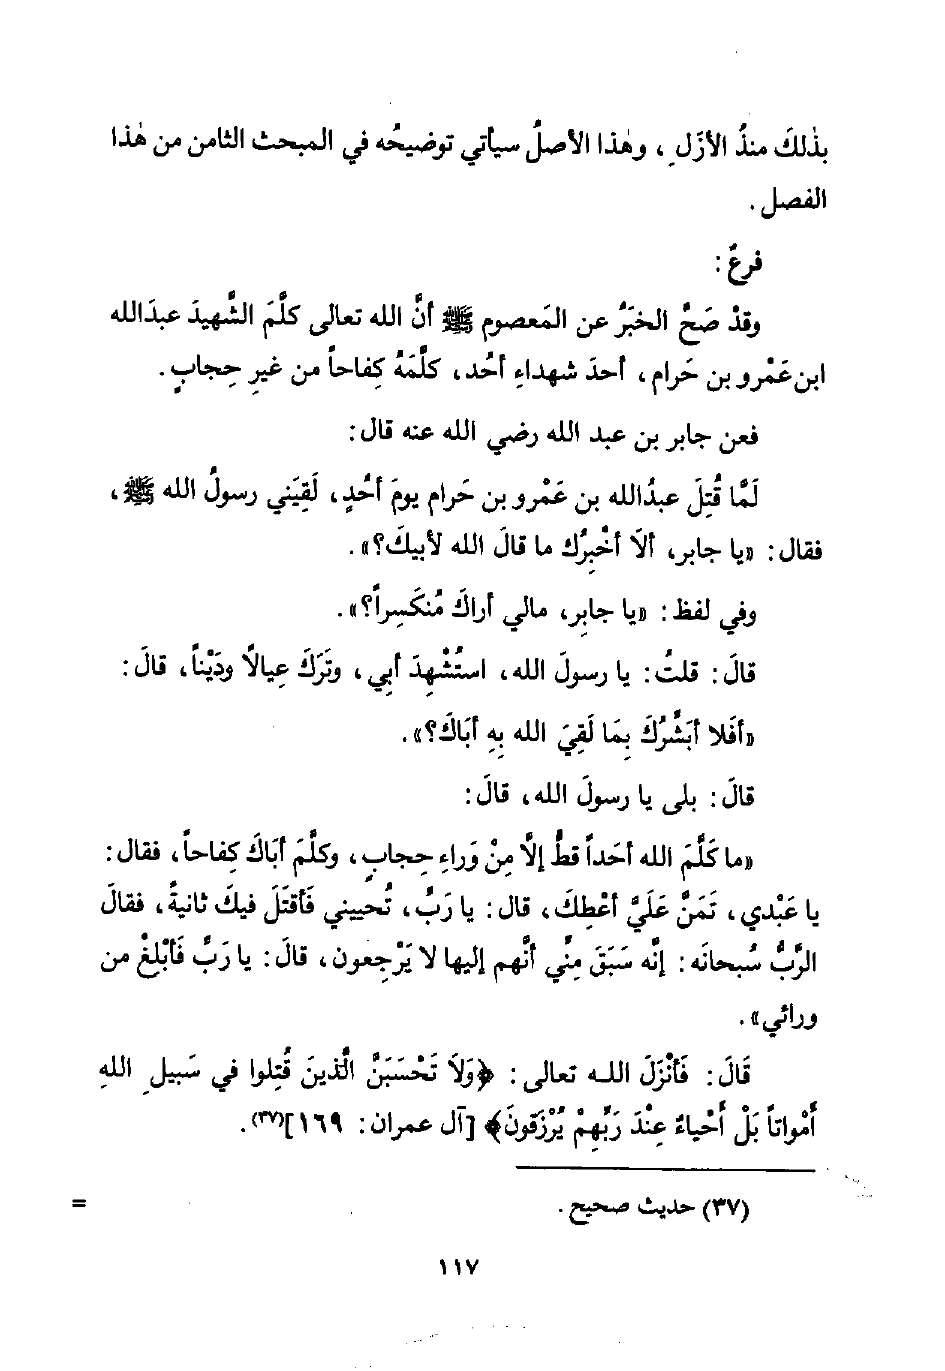 بذٰلكَ منذُ الأزَلِ ، وهٰذا الأصلُ سيأتي توضيحُه في المبحث الثامن من هٰذا
الفصل .
فرعٌ :
وقدْ صَحَّ الخبَرُ عن المَعصوم ﷺ أنَّ الله تعالى كلَّمَ الشَّهيدَ عبدَالله
ابن عَمْرو بن حَرام ، أحدَ شهداءِ أحُد، كلَّمَهُ كِفاحاً من غيرِ حِجابٍ .
فعن جابر بن عبد الله رضي الله عنه قال :
لَمَّا قُتِلَ عبدُالله بن عَمْرو بن حَرام يومَ أحُدٍ، لَقِيَني رسولُ الله ﷺ ،
فقال : «يا جابر، ألَا أخْبِرُك ما قالَ الله لأبيكَ؟» .
وفي لفظ : «يا جابِر، مالي أراكَ مُنكَسِراً؟» .
قالَ : قلتُ : يا رسولَ الله، استُشْهِدَ أبي ، وتَرَكَ عِيالاً ودَيْناً، قالَ :
«أفَلا أبَشِّرُكَ بِمَا لَقِيَ الله بِهِ أبَاكَ؟» .
قالَ : بلى يا رسولَ الله، قالَ :
«ما كَلَّمَ الله أحَداً قطُّ إلَّا مِنْ وَراءِ حِجابٍ ، وكلَّمَ أبَاكَ كِفاحاً، فقال :
يا عَبْدي ، تَمَنَّ عَلَيَّ أعْطِكَ، قال : يا رَبُّ، تُحييني فَأقتَلَ فيكَ ثانيةً، فقالَ
الرَّبُّ سُبحانَه : إنَّه سَبَقَ مِنِّي أنَّهم إليها لا يَرْجِعون ، قالَ : يا رَبِّ فَأبْلِغْ من
ورائي» .
قَالَ : فَأنْزَلَ اللـه تعالى : ﴿وَلَا تَحْسَبَنَّ الَّذينَ قُتِلوا في سَبيلِ اللهِ
أَمْواتاً بَلْ أَحْياءٌ عِنْدَ رَبِّهِمْ يُرْزَقونَ﴾ [آل عمران : ١٦٩](٣٧).
(٣٧) حديث صحيح . =
١١٧